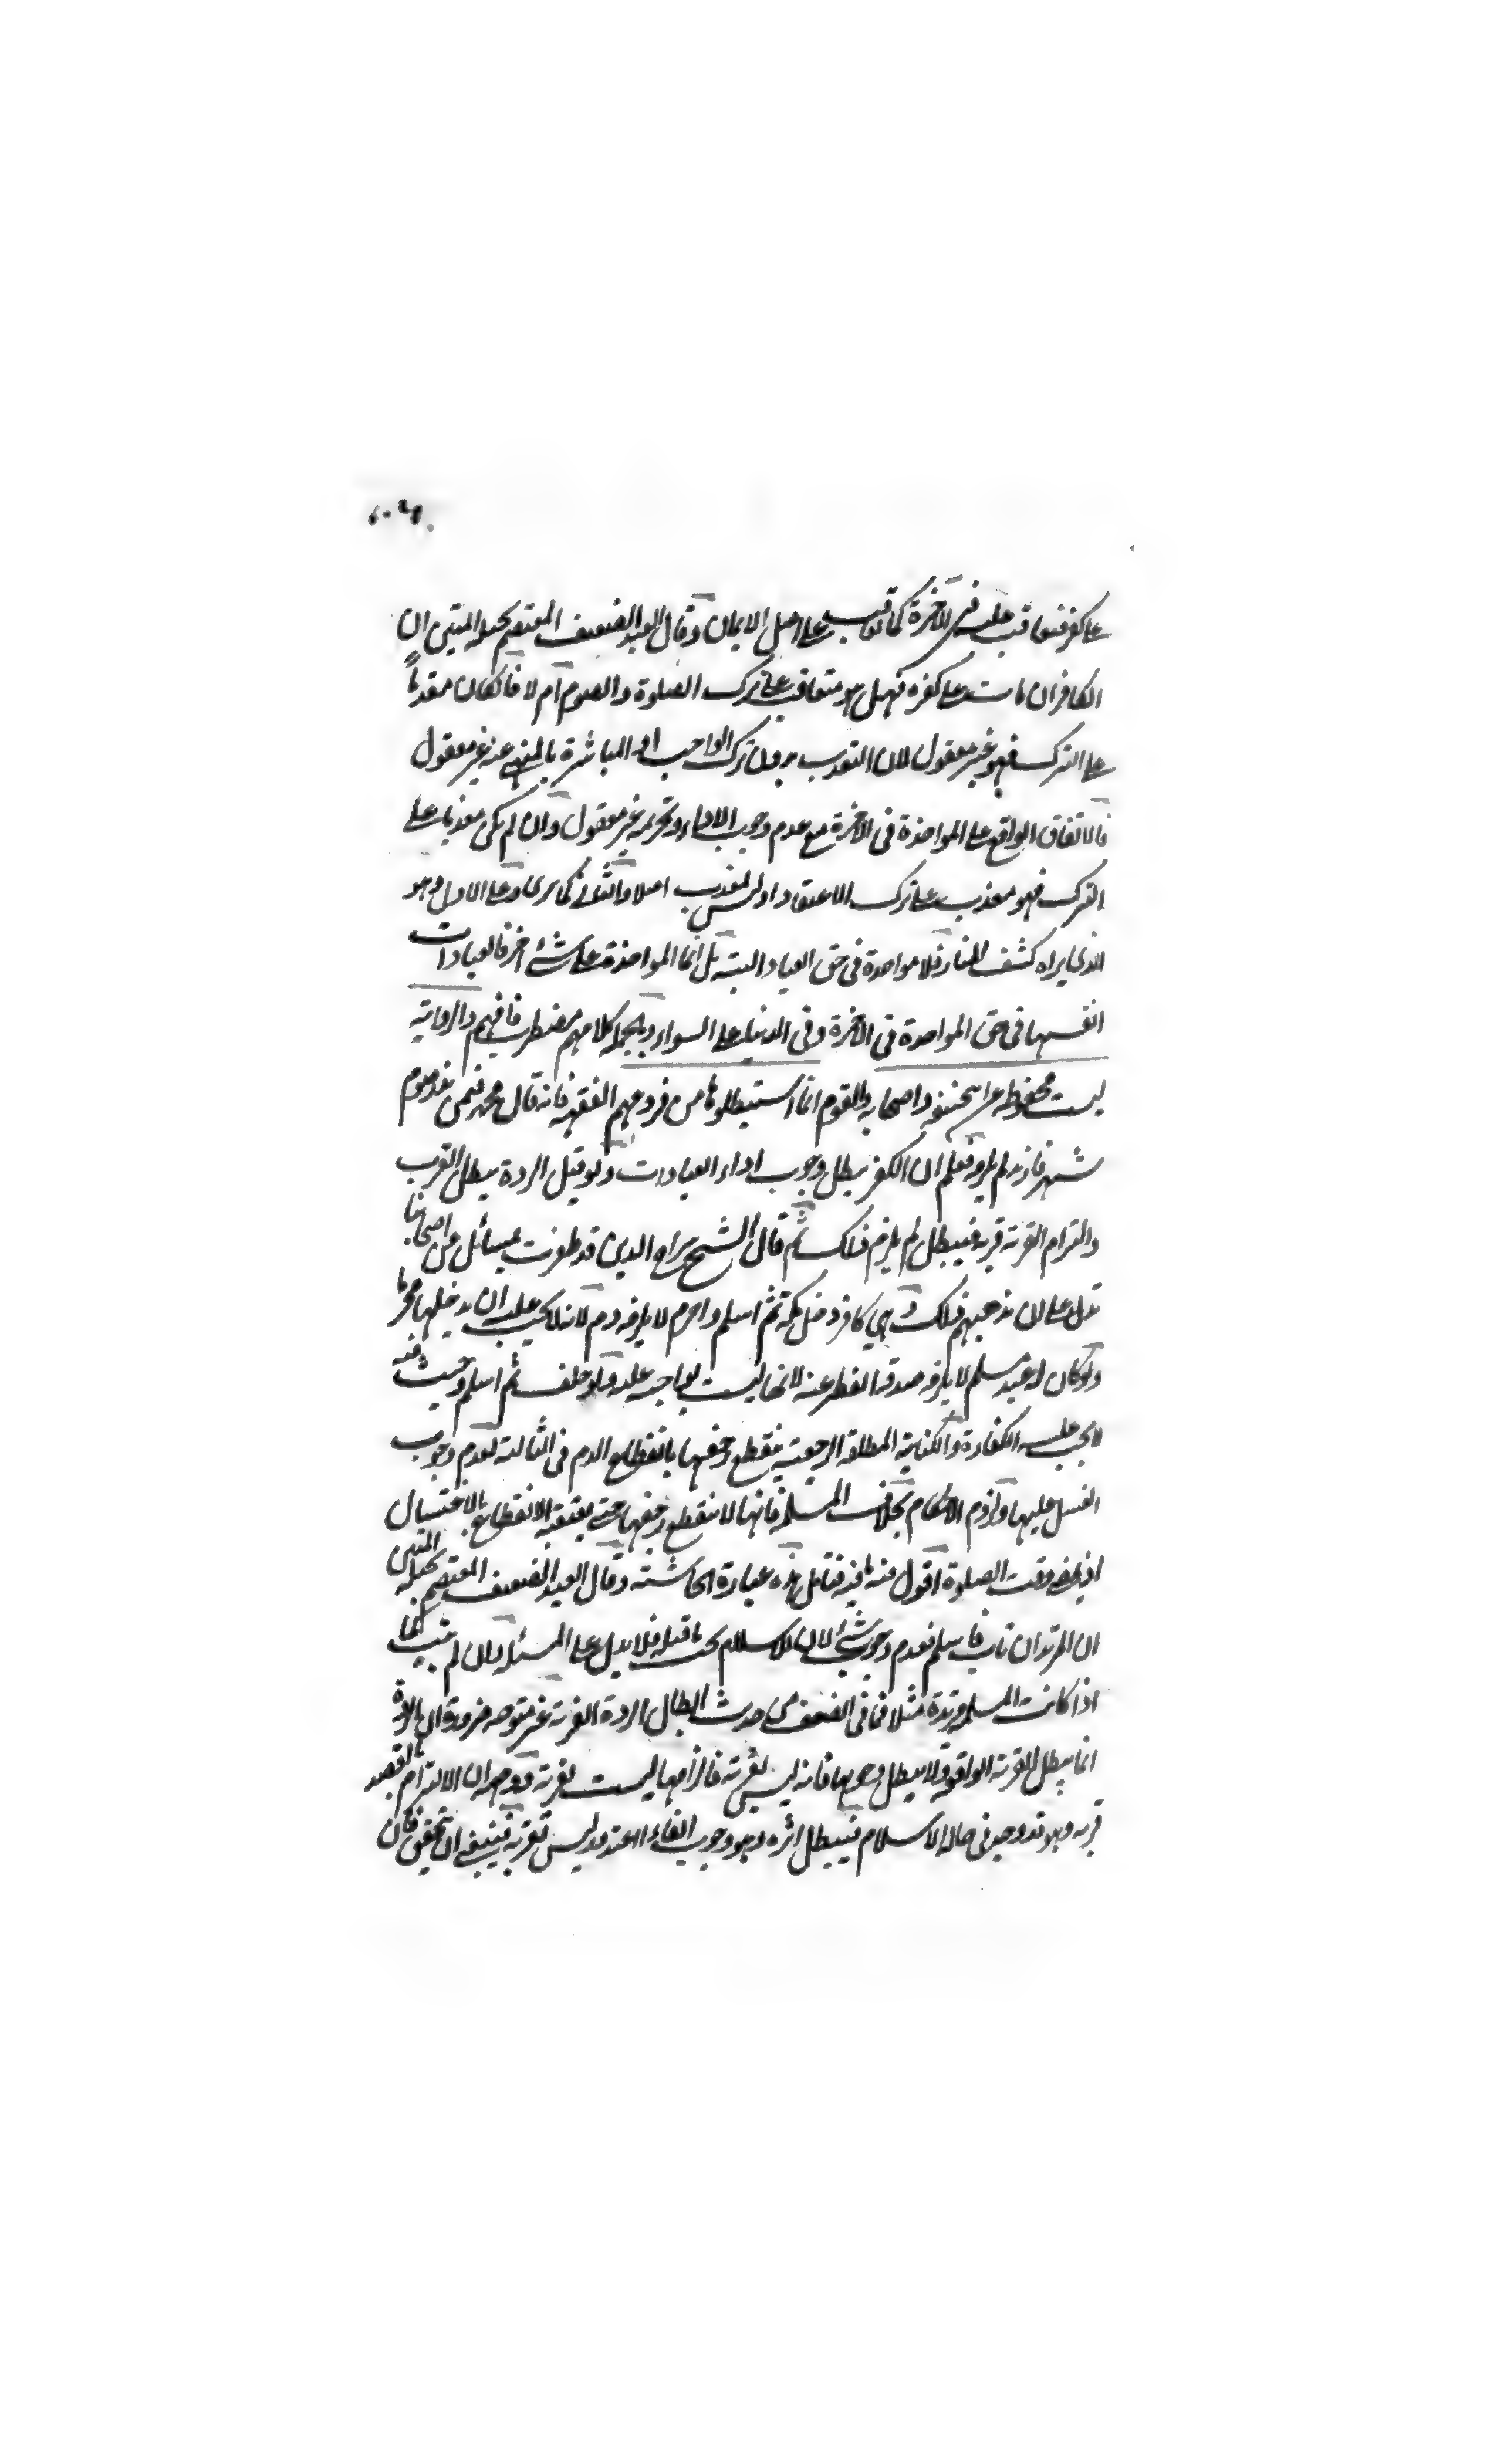 على كفر فيعاقب عليه في الآخرة كما يعاقب على اصل الايمان وقال العبد الضعيف المعتصم بحبله المتين ان
الكافر ان مات على كفره فهل هو متعاقب على ترك الصلوة والصوم ام لا فان كان معذبا
على الترك فهو غير معقول لان التعذيب بدون ترك الواجب او المباشرة بالمنهي عنه غير معقول
فالاتفاق الواقع على المواخذة في الآخرة مع عدم وجوب الاداء وتحريمه غير معقول وان لم يكن معذبا على
الترك فهو معذب على ترك الاعتقاد او ليس بمعذب اصلا والثاني كما ترى وعلى الاول وهو
الذي يراه كشف المنار فلا مواخذة في حق العباد البتة بل انما المواخذة على شئ اخر فالعبادات
انفسها في حق المواخذة في الآخرة وفي الدنيا على السواء وبالجملة كلامهم مضطرب فافهم والرواية
ليست محفوظة عن ابي حنيفة واصحابه والقوم انما استنبطوها من فروعهم الفقهية فانه قال محمد فيمن نذر صوم
شهر فارتد لم يلزمه فعلم ان الكفر يبطل وجوب اداء العبادات ولو قيل الردة يبطل القرب
والتزام القربة قربة فيبطل لم يلزم ذلك ثم قال الشيخ سراج الدين قد ظفرت بمسائل عن اصحابنا
تدل على ان مذهبهم ذلك وهي كافر دخل مكة ثم اسلم واحرم لا يلزمه دم لانه لا يجب عليه ان يدخلها محرما
ولو كان له عبد مسلم لا يلزمه صدقة الفطر عنه لانها ليست بواجبة عليه ولو حلف ثم اسلم وحنث فيه
لا يجب عليه الكفارة والكتابية المطلقة الرجعية ينقطع رجعتها بانقطاع الدم في الثالثة لعدم وجوب
الغسل عليها ولزوم الاحكام بخلاف المسلمة فانها لا ينقطع رجعتها حتى يعتضد الانقطاع بالاغتسال
او بمضي وقت الصلوة اقول فيه ما فيه فتامل هذه عبارة الحاشية وقال العبد الضعيف المعتصم بحبله المتين
ان المرتد ان تاب فاسلم فعدم وجوب شئ لان الاسلام يجب ما قبله فلا يدل على المسئلة وان لم يتب كما
اذا كانت المسلمة مرتدة مثلا فما في الضعف من حديث ابطال الردة القربة غير متوجه ضرورة ان الردة
انما يبطل القربة الواقعة ولا يبطل وجوبها فانه ليس بقربة فالزامها ليست بقربة ووجهه ان الالتزام بالقصد
قربة وهو قد وجد في حالة الاسلام فيبطل اثره وهو وجوب ايفاء العهد وليس بقربة فينبغي ان يتحقق فان